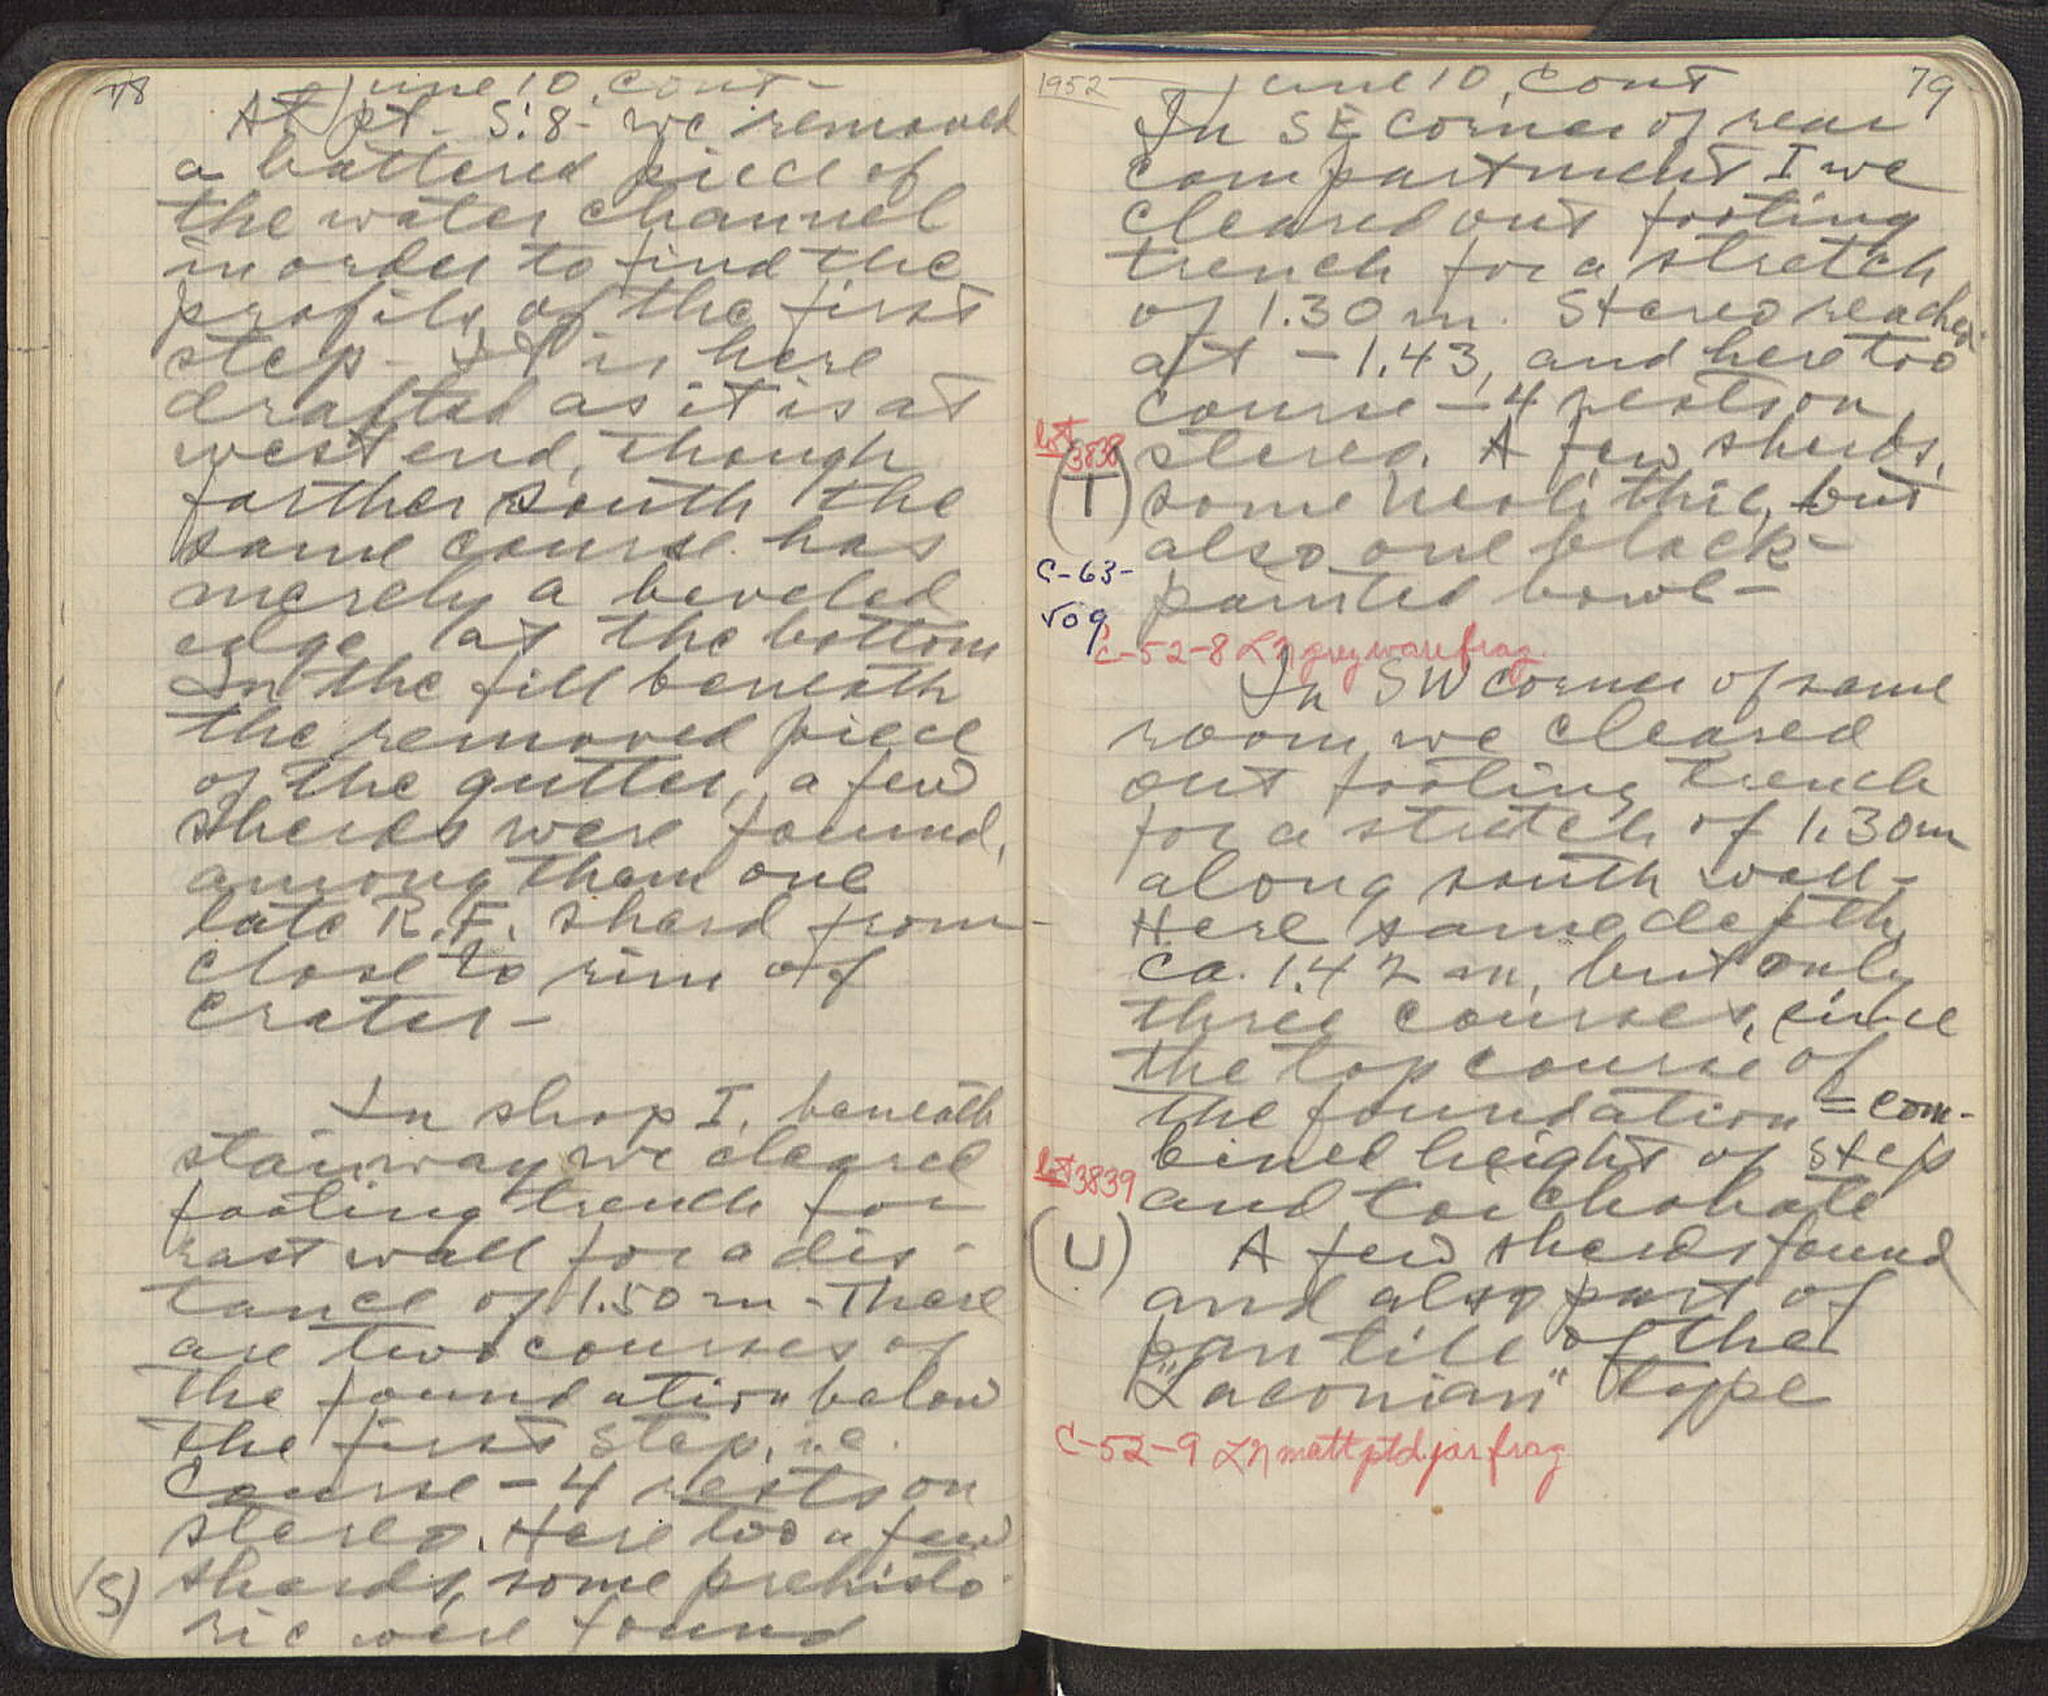 78
June 10, cont-
At pt. S:8- we removed
a battered piece of
the water channel
in order to find the
profile of the first
step - It is here
drafted as it is at
west end, though
farther south the
same course has
merely a beveled
edge at the bottom
In the fill beneath
the removed piece
of the gutter, a few
sherds were found,
among them one
late R.F. sherd from
close to rim of
crater-
In shop I, beneath
stairway we cleared
footing trench for
east wall for a dis-
tance of 1.50 m - There
are two courses of
the foundation below
the first step, i.e.
course -4 rests on
stereo. Here too a few
(S) sherds, some prehisto-
ric were found
1952
June 10, cont
79
In SE corner of rear
compartment I we
cleared out footing
trench for a stretch
of 1.30 m. Stereo reached
at -1.43, and here too
course -4 rests on
lot 3838
stereo. A few sherds,
(T) some neolithic, but
also one black-
C-63-
painted bowl-
C-52-8 LN grey ware frag.
In SW corner of same
room we cleared
out footing trench
for a stretch of 1.30m
along south wall-
Here same depth,
ca. 1.42 m, but only
three courses, since
the top course of
the foundation = com-
bined height of step
lot 3839
and toichobate
(U) A few sherds found
and also part of
pan tile of the
"Laconian" type
C-52-9 LN matt ptd. jar frag